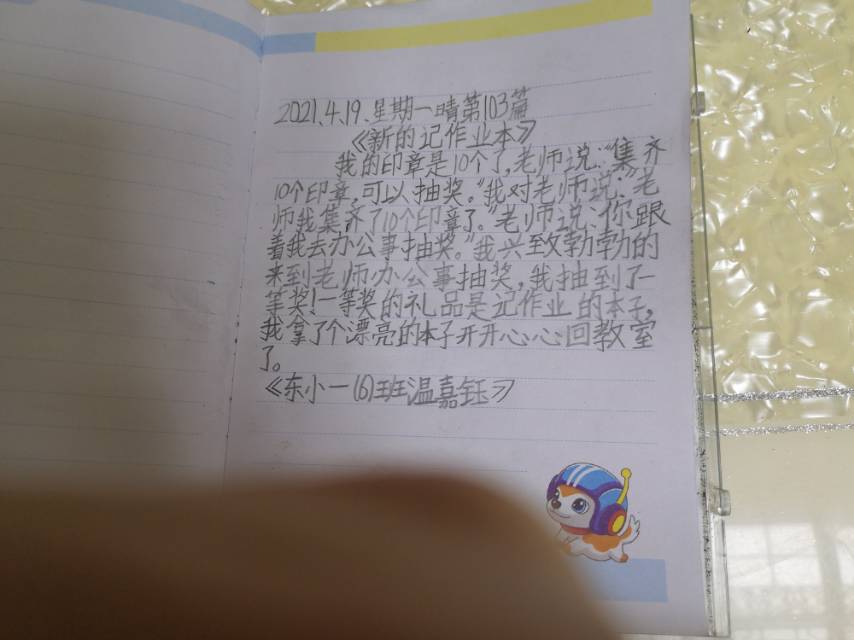 2021.4.19.星期一晴第103篇
《新的记作业本》
我的印章是10个了,老师说:“集齐
10个印章,可以抽奖。”我对老师说:“老
师我集齐了10个印章了。”老师说、你跟
着我去办公事抽奖。”我兴致勃勃的
来到老师办公事抽奖,我抽到了一
等奖!一等奖的礼品是记作业的本子,
我拿了个漂亮的本子开开心心回教室
了。
《东小一(6)班温嘉钰》